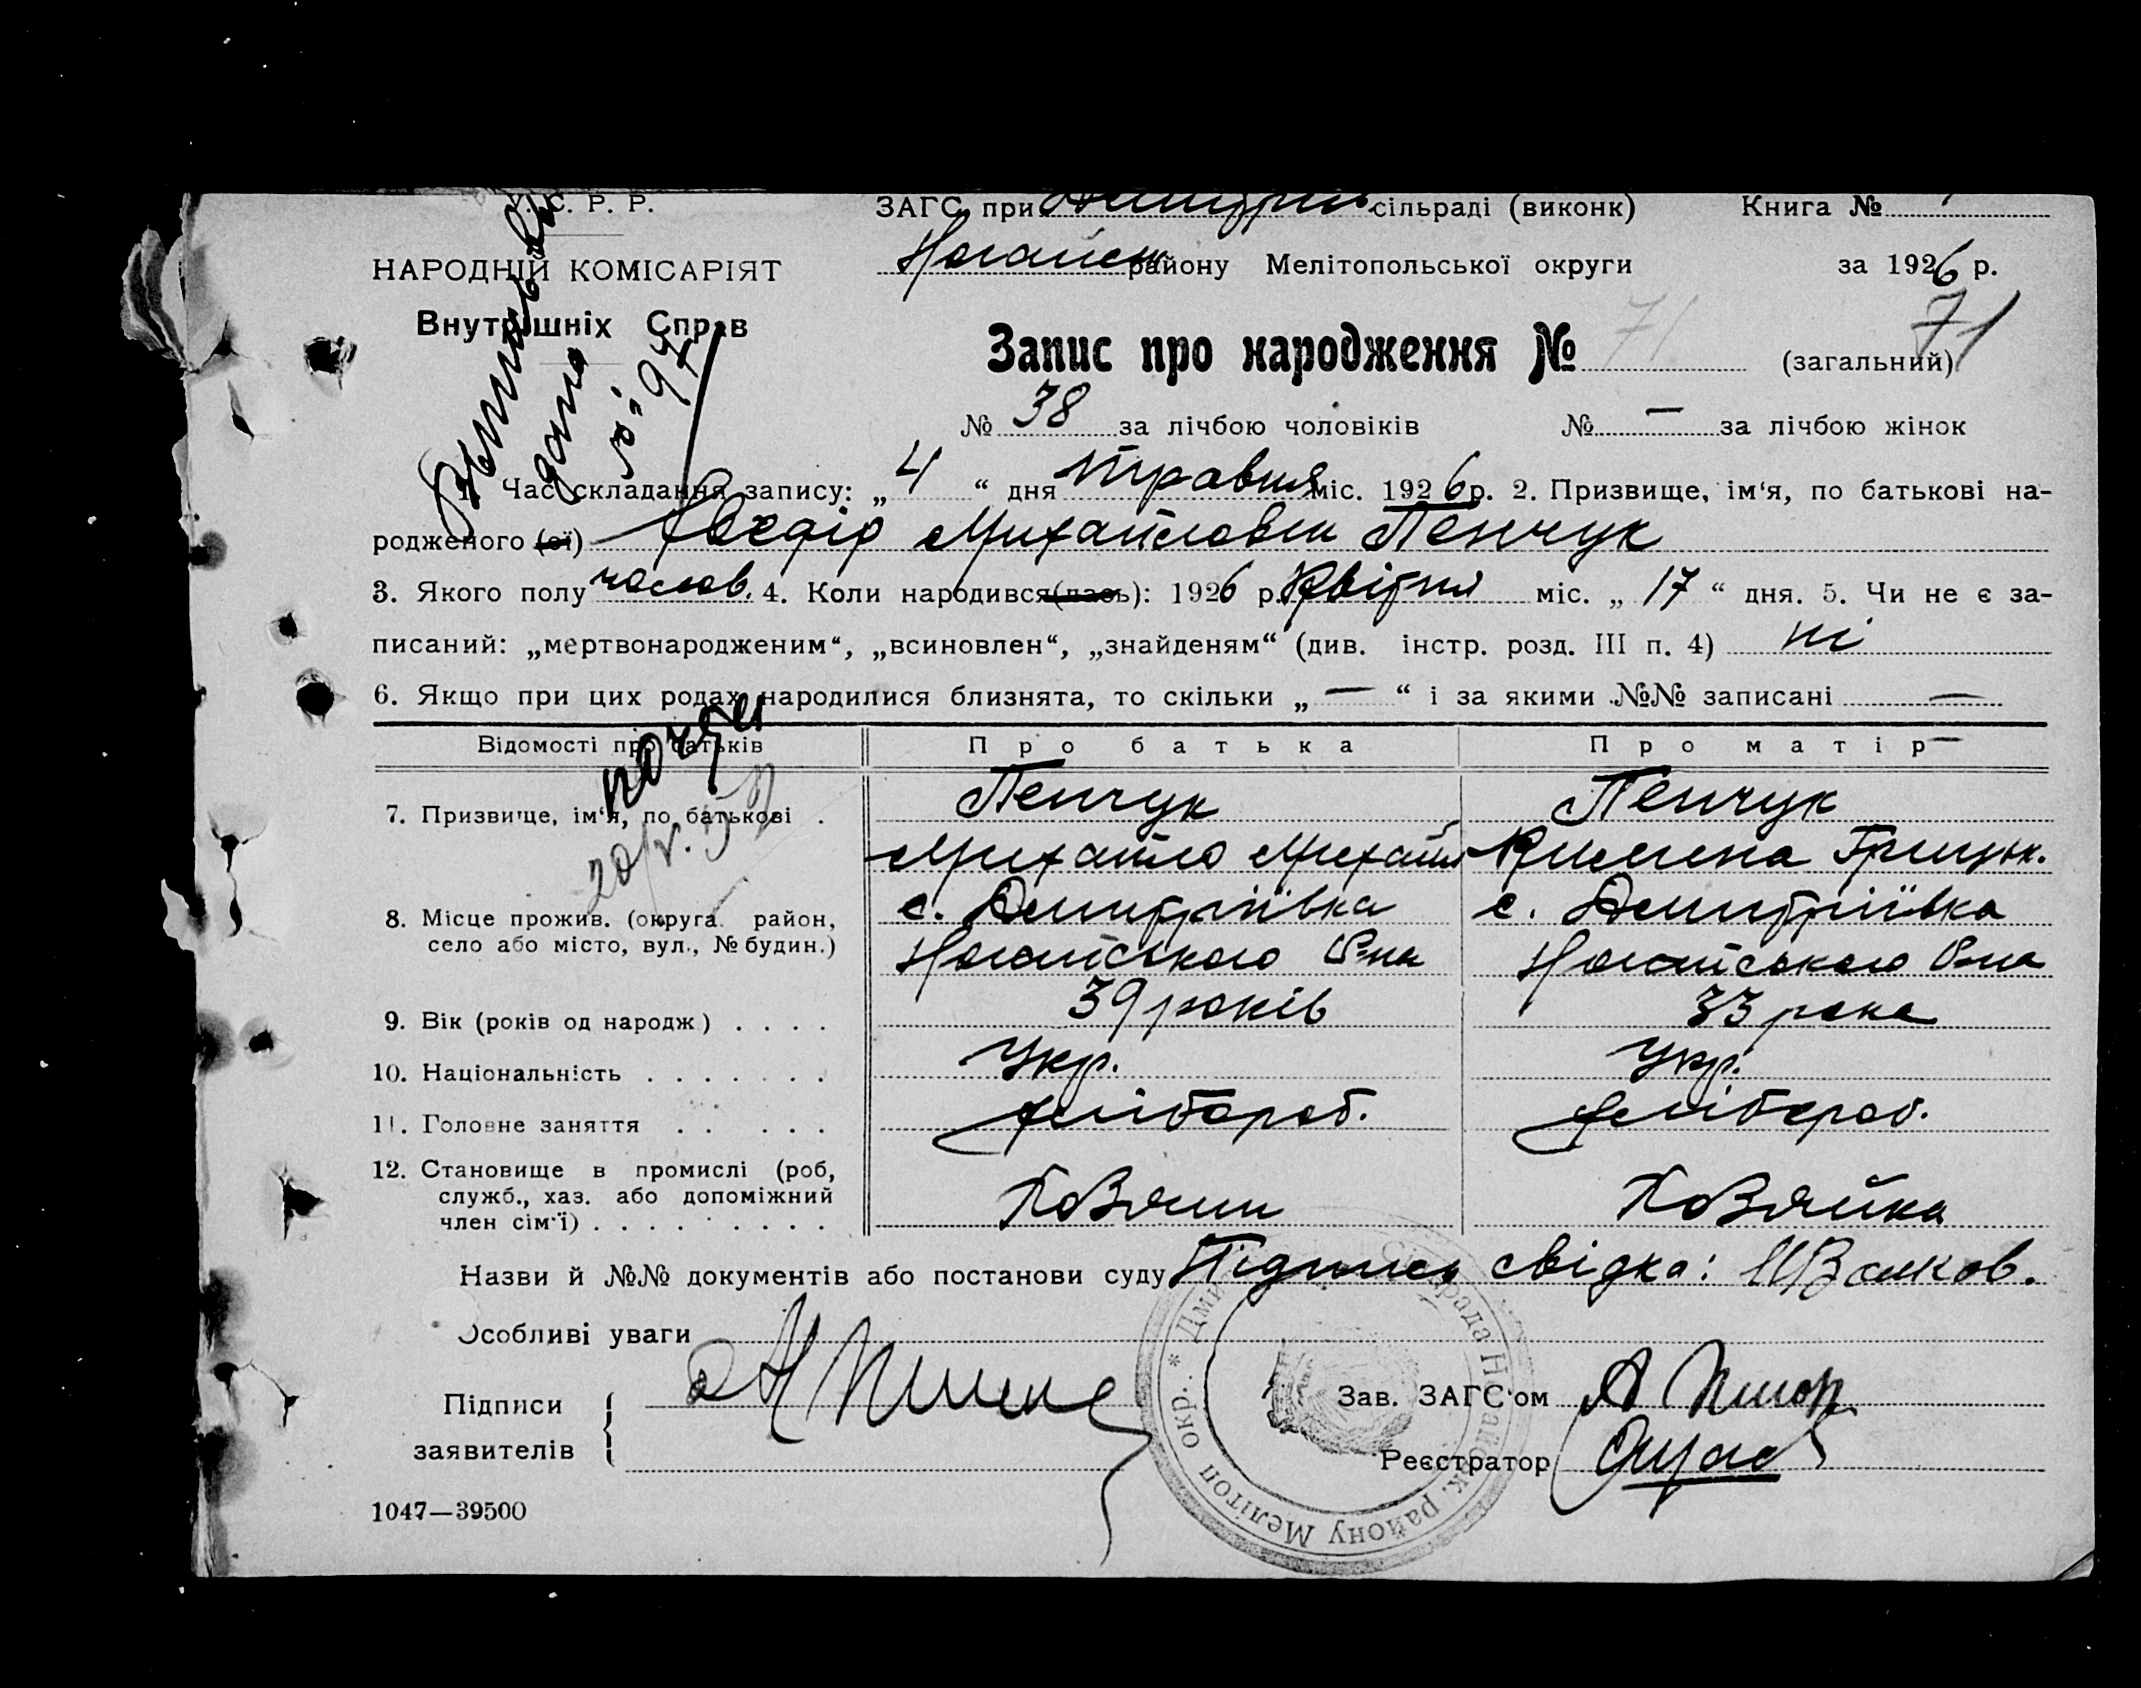 У. С. Р. Р.
НАРОДНІЙ КОМІСАРІЯТ
Внутрішніх Справ
ЗАГС при сільраді (виконк)
Ногайськ району Мелітопольської округи
Книга №
за 1926 р.
Запис про народження № 71 (загальний) 71
№ 38 за лічбою чоловіків № — за лічбою жінок
1. Час складання запису: „ 4 “ дня травня міс. 1926 р. 2. Призвище, ім‘я, по батькові на-
родженого (ої) Михайлович Пенчук
3. Якого полу чолов. 4. Коли народився (лась): 1926 р. Квітня міс. „ 17 “ дня. 5. Чи не є за-
писаний: „мертвонародженим“, „всиновлен“, „знайденям“ (див. інстр. розд. III п. 4) ні
6. Якщо при цих родах народилися близнята, то скільки „ — “ і за якими №№ записані —
Відомості про батьків Про батька Про матір
7. Призвище, ім‘я, по батькові . Пенчук Пенчук
Михайло Михайл Килина Грицьк.
8. Місце прожив. (округа район, с. Дмитріївка с. Дмитріївка
село або місто, вул., № будин.) Ногайського Р-на Ногайського Р-на
9. Вік (років од народж) . . . . 39 років 33 рока
10. Національність . . . . . . . Укр. Укр.
11. Головне заняття . . . . . хлібороб. хлібороб.
12. Становище в промислі (роб,
служб., хаз. або допоміжний
член сім‘ї) . . . . . . . . . Хозяин Хозяйка
Назви й №№ документів або постанови суду Підпись свідка:
Особливі уваги
Підписи
заявителів
Зав. ЗАГС‘ом
Реєстратор
1047—39500